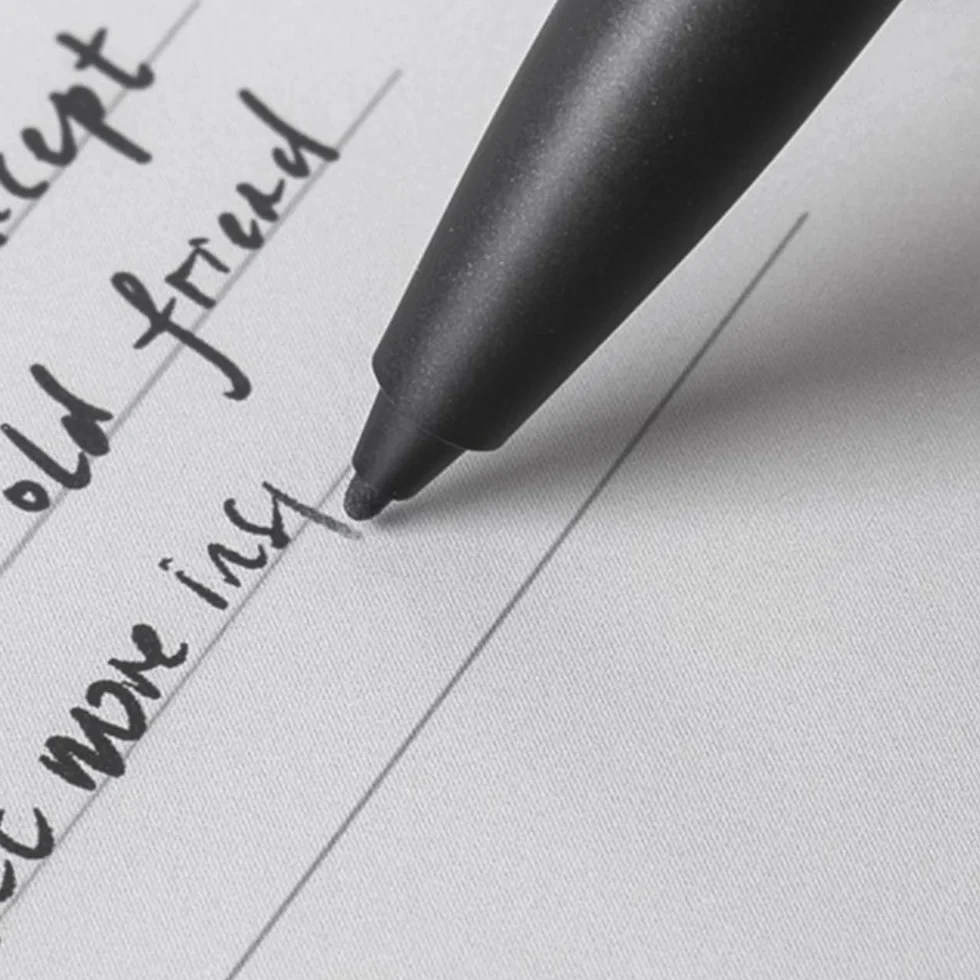 cept
old friend
more insp